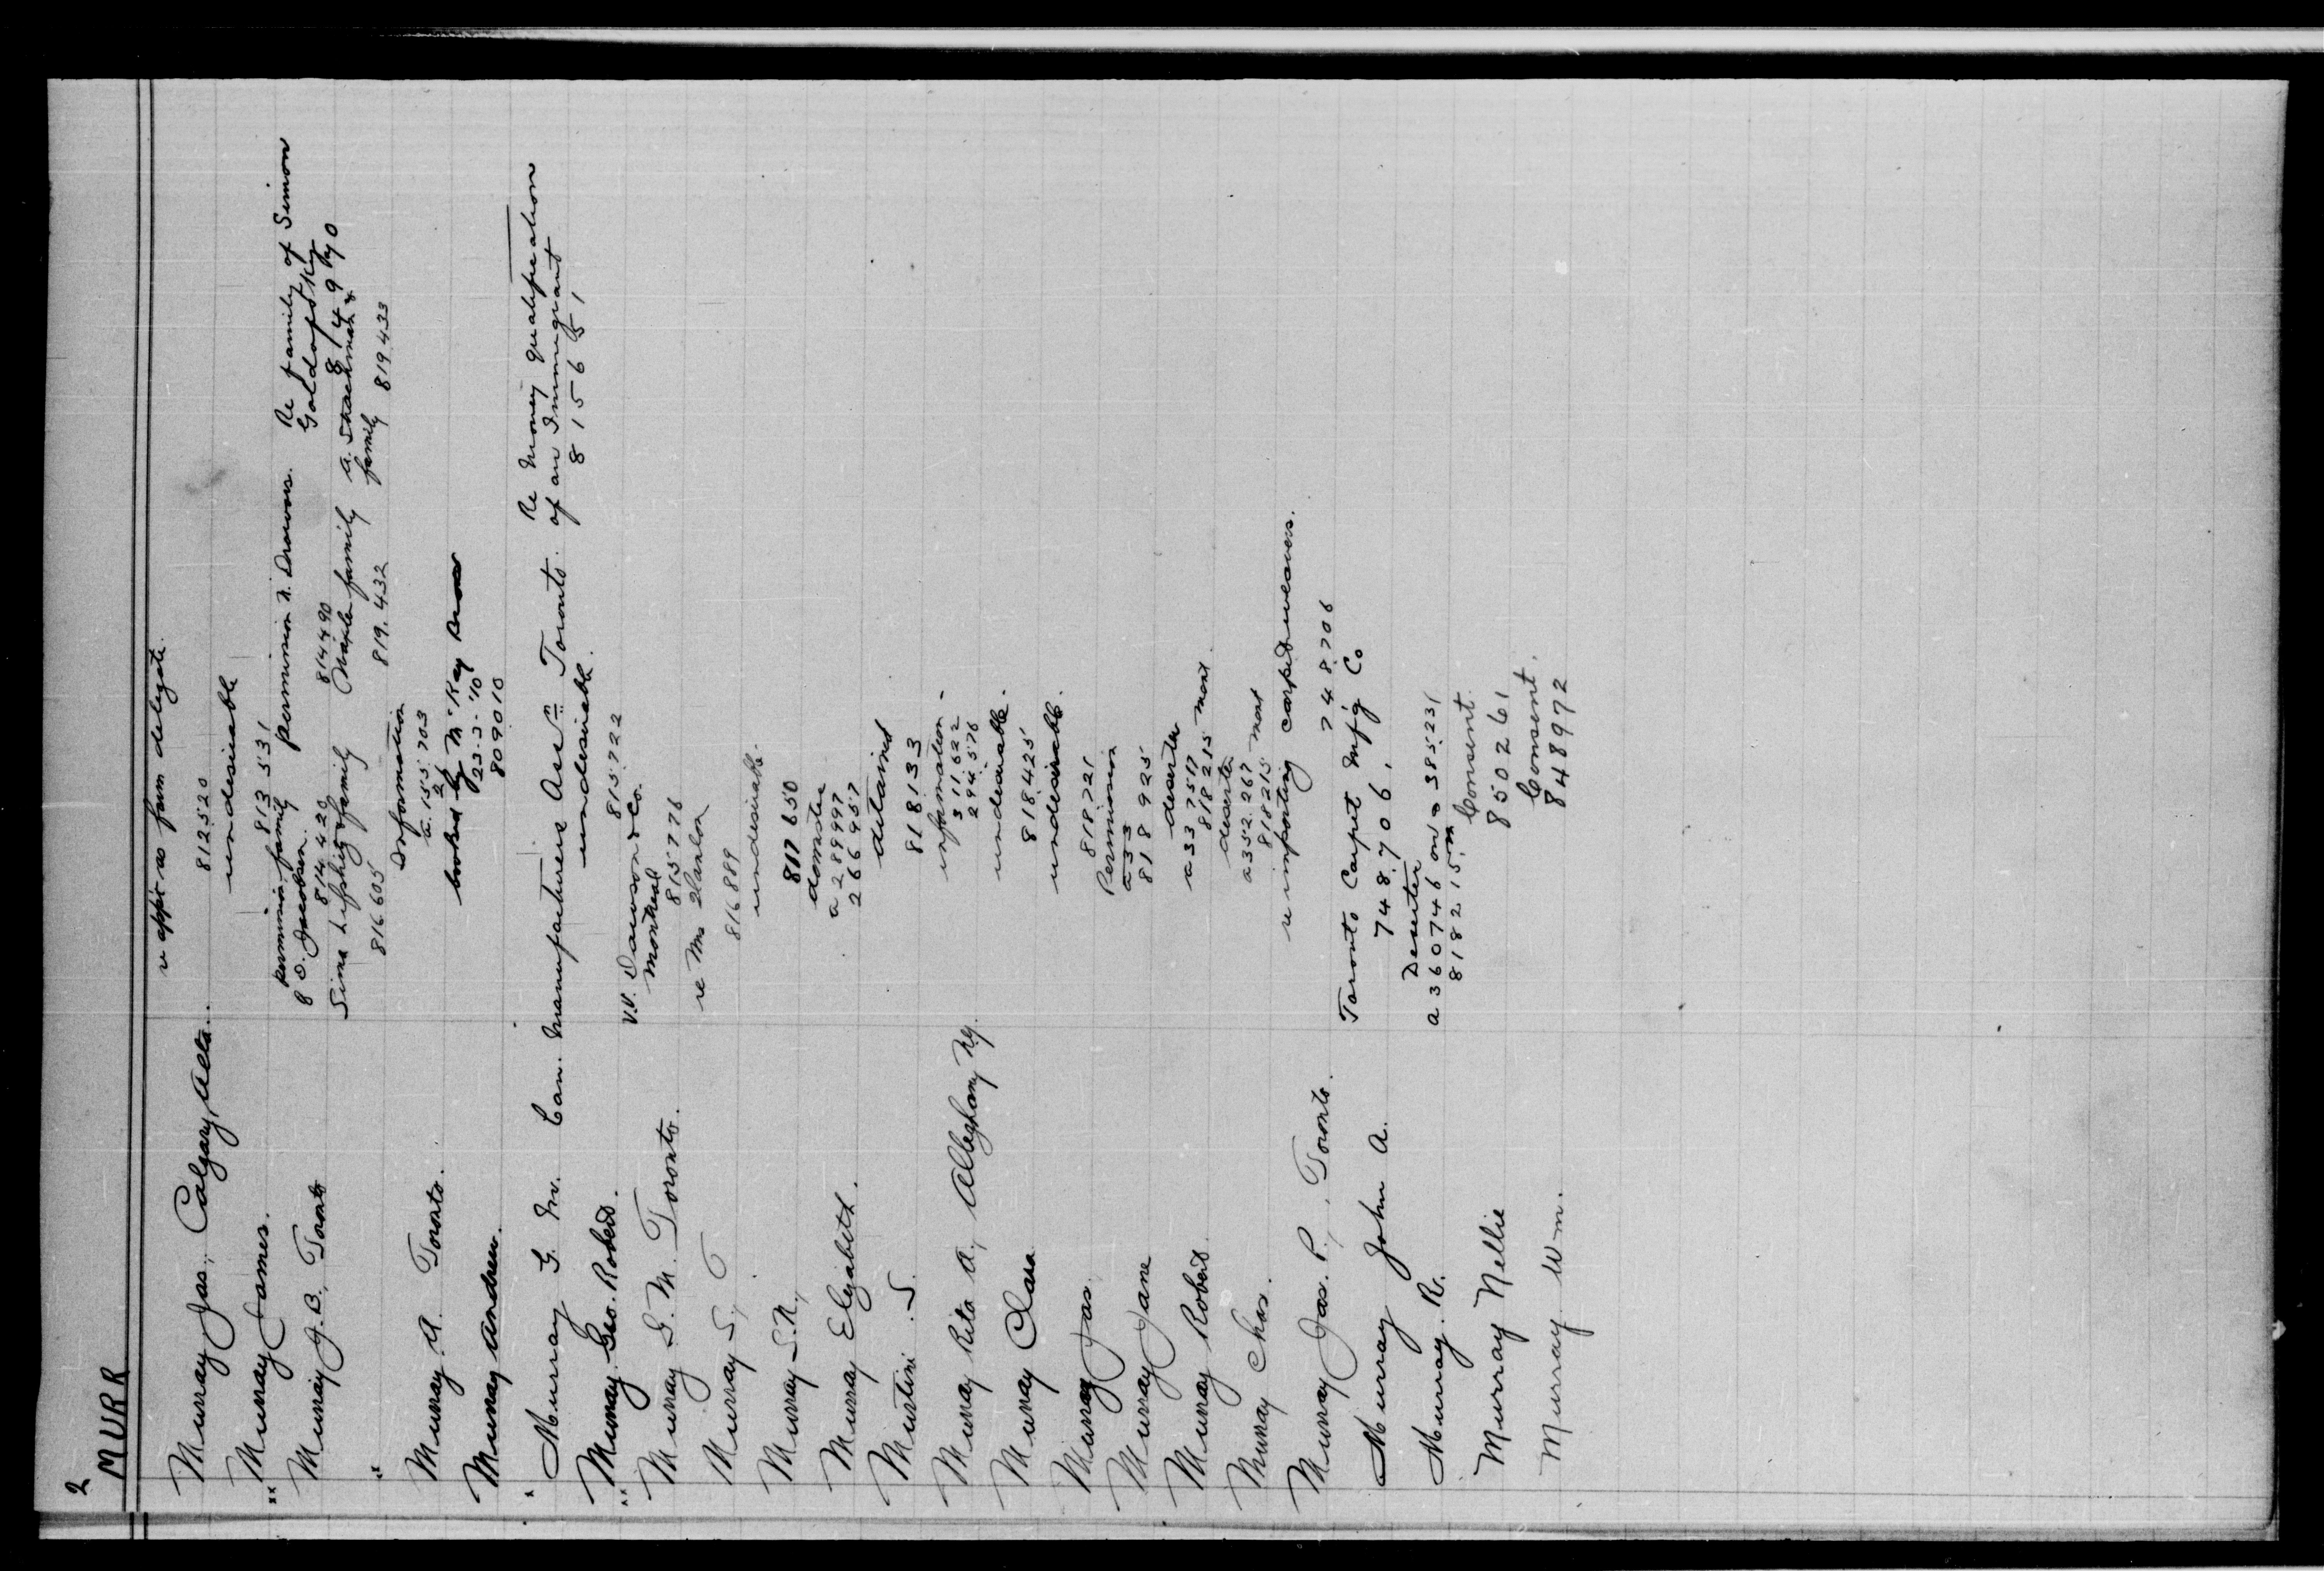 2
MURR
Murray Jas., Calgary, Alta. re appt as farm delegate.
812520
Murray James. undesirable
813531
Murray J. B., Toronto permission family permission N. Drawers. Re family of Simon
S. Jacobson. Goldofsky
814420 814490 814970
Sima Lifshitz family family A. Strachman &
816605 819.432 family 819433
Murray A. Toronto. Information
a. 155.703
Murray Andrew. booked by McKay Bros
23-3-'10
809010
Murray G. M. Can. Manufacturers Assn Toronto. Re Money qualification
of an Immigrant
815651
Murray Geo. Robert. undesirable.
815722
Murray G. M. Toronto. V.V. Dawson & Co.
Montreal
815776
Murray S, re Mrs Hanlon
816889
Murray S. N., undesirable.
817650
Murray Elizabeth. domestic
a 289997
266957
Murtini S. detained
818133
Murray Rita A., Alleghany Ny. information -
311.622
294.576
Murray Clara undesirable.
818425
Murray Jas. undesirable.
818721
Murray Jane Permission
a 33
818925
Murray Robert deserter
a 337517
818215 mont.
Murray Chas. deserter
a 352.267
818215 mont
Murray Jas. P., Toronto. re importing carpet weavers.
748706
Murray John A. Toronto Carpet Mfg Co
748706.
Murray. R. Deserter
a 360746 on a 385231
818215 m
Murray Nellie Consent.
850261
Murray Wm. Consent.
848972